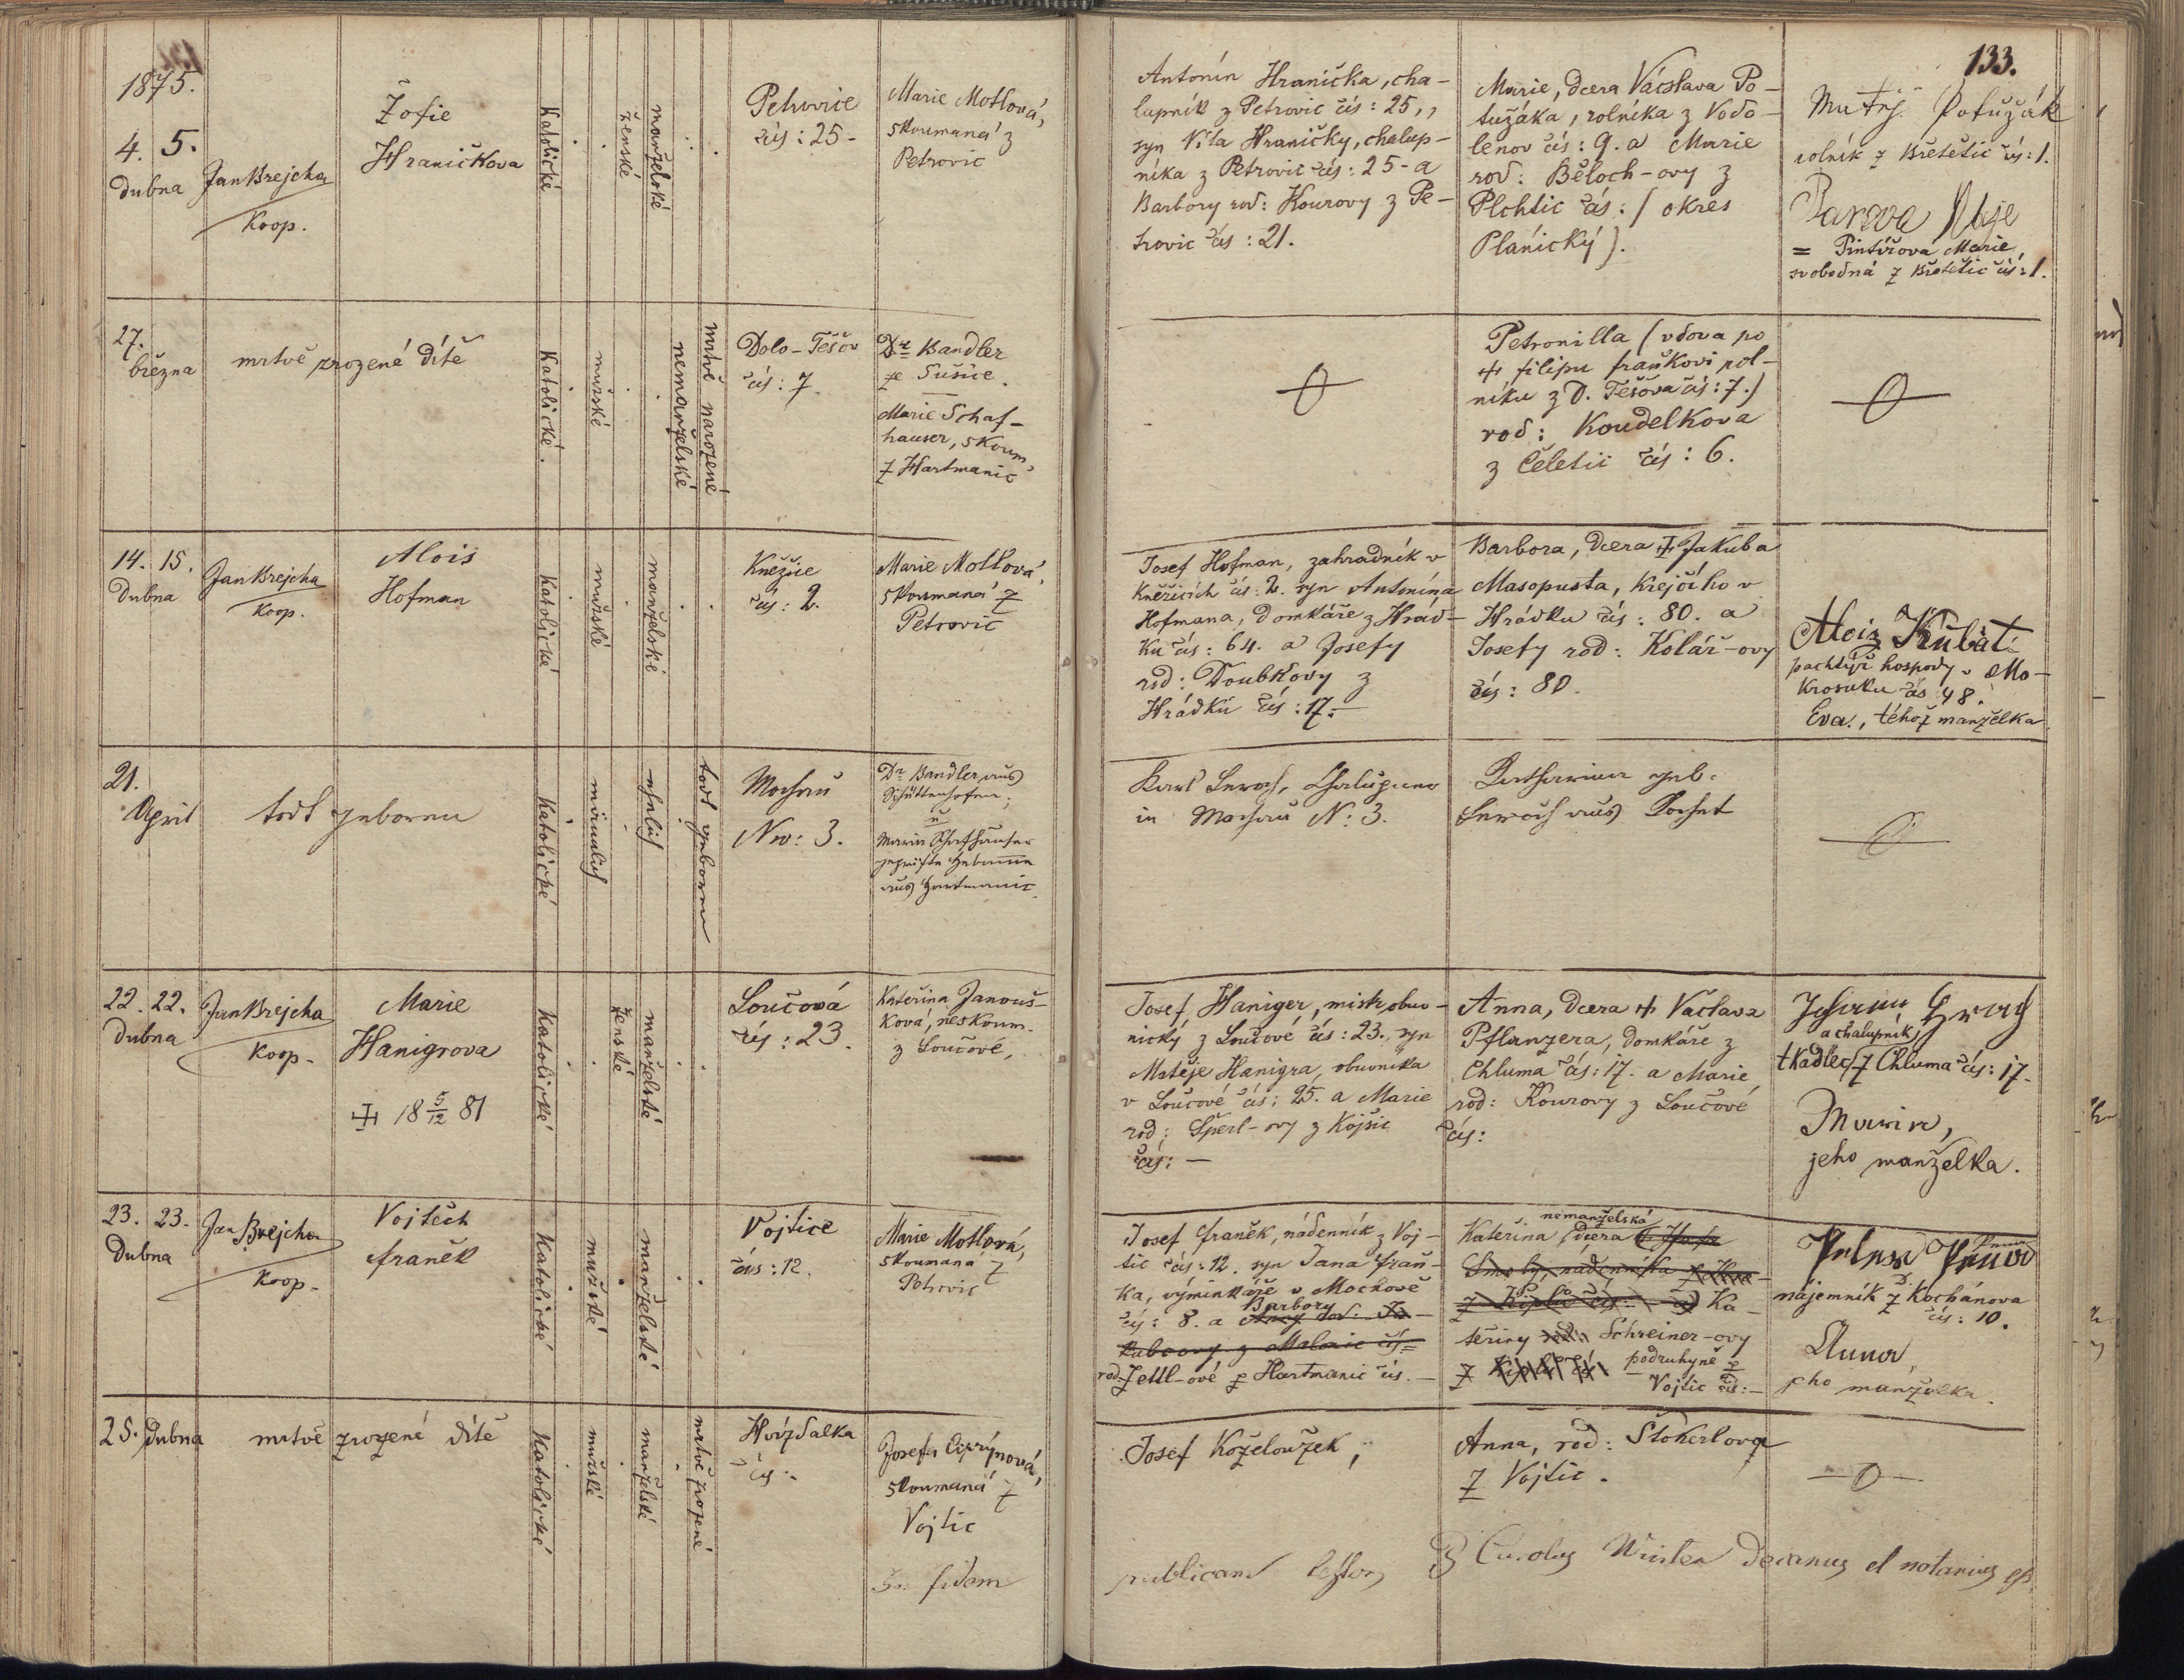 133.
1875.
4. 5.
Dubna
Jan Brejcha
Koop.
Žofie
Hraničkova
Katolické
ženské
manželské
Petrovice
čís: 25-
Marie Motlová,
skoumaná z
Petrovic
Antonín Hranička, cha-
lupník z Petrovic čís: 25,,
syn Víta Hraničky, chalup-
níka z Petrovic čís: 25- a
Barbory rod: Kourovy z Pe-
trovic čís: 21.
Marie, dcera Václava Po-
tužáka, rolníka z Vodo-
lenov čís: 9. a Marie
rod: Běloch-ovy z
Plchtic čís: / okres
Plánický).
Potužák
rolník z Břetětic čís: 1.
= Pintířová Marie,
svobodná z Břetětic čís: 1.
27.
března
mrtvě zrozené dítě
Katolické.
mužské
nemanželské
mrtvě narozené
Dolo-Těšov
čís: 7
Dr Bandler
ze Sušice.
Marie Schaf-
hauser, skoum,
z Hartmanic
Petronilla / vdova po
filipu fraňkovi rol-
níku z D. Těšova čís: 7./
rod: Koudelkova
z Čeletic čís: 6.
14. 15.
Dubna
Jan Brejcha
Koop.
Alois
Hofman
Katolické
mužské
manželské
Kněžice
čís: 2.
Marie Motlová,
skoumaná z
Petrovic
Josef Hofman, zahradník v
Kněžicích čís: 2. syn Antonína
Hofmana, Domkáře z Hrád-
ku čís: 64. a Josefy
rod: Doubkovy z
Hrádku čís: 17.-
Barbora, dcera Jakuba
Masopusta, Krejčího v
Hrádku čís: 80. a
Josefy rod: Kolář-ovy
čís: 80.
Aloiz Kubát
pachtýř hospody v Mo-
krosuku čís 48.
Eva, téhož manželka
21.
April
todt geboren
Katolické
männlich
ehelich
todt geboren
Mochau
Nro: 3.
Dr Bandler aus
Schüttenhofen;
u
Maria Schafhauser
geprüfte Hebamme
aus Hartmanic
Karl Chalupner
in Mochau N: 3.
Katharina geb:
aus
22. 22.
Dubna
Jan Brejcha
Koop.
Marie
Hanigrova
18 5/12 81
Katolické
ženské
manželské
Loučová
čís: 23.
Kateřina Janouš-
ková, neskoum.
z Loučové,
Josef Haniger, mistr obuv-
nický z Loučové čís: 23., syn
Matěje Hanigra, obuvníka
v Loučové čís: 25. a Marie
rod: Šperl-ovy z Kojšic
čís: -
Anna, dcera Vačlava
Pflanzera, domkáře z
Chluma čís: 17. a Marie
rod: Kourovy z Loučové
čís:
Johann
a chalupník
tkadlec z Chluma čís: 17.
Maria,
jeho manželka.
23. 23.
Dubna
Jan Brejcha
Koop.
Vojtěch
franěk
Katolické
mužské
manželské
Vojtice
čís: 12.
Marie Motlová,
skoumana z
Petrovic
Josef franěk, nádenník z Voj-
tic čís: 12. syn Jana fraň-
ka, výminkáře v Mochově
čís: 8. a Barbory
rod. Jettl-ové z Hartmanic čís. -
nemanželská
Kateřina, dcera
Ka-
teřiny Schreiner-ovy
z podruhyně z
Vojtic čís: -
nájemník z Kochánova
čís: 10.
Anna,
jeho manželka.
25. Dubna
mrtvě zrozené dítě
Katolické
mužské
manželské
mrtvě zrozené
Hvízdalka
čís:
Josefa Ciprýnová,
skoumaná z
Vojtic
Josef Koželoužek,
Anna, rod: Štoherlova
z Vojtic.
In fidem
publicam Carolus Decanus et notarius